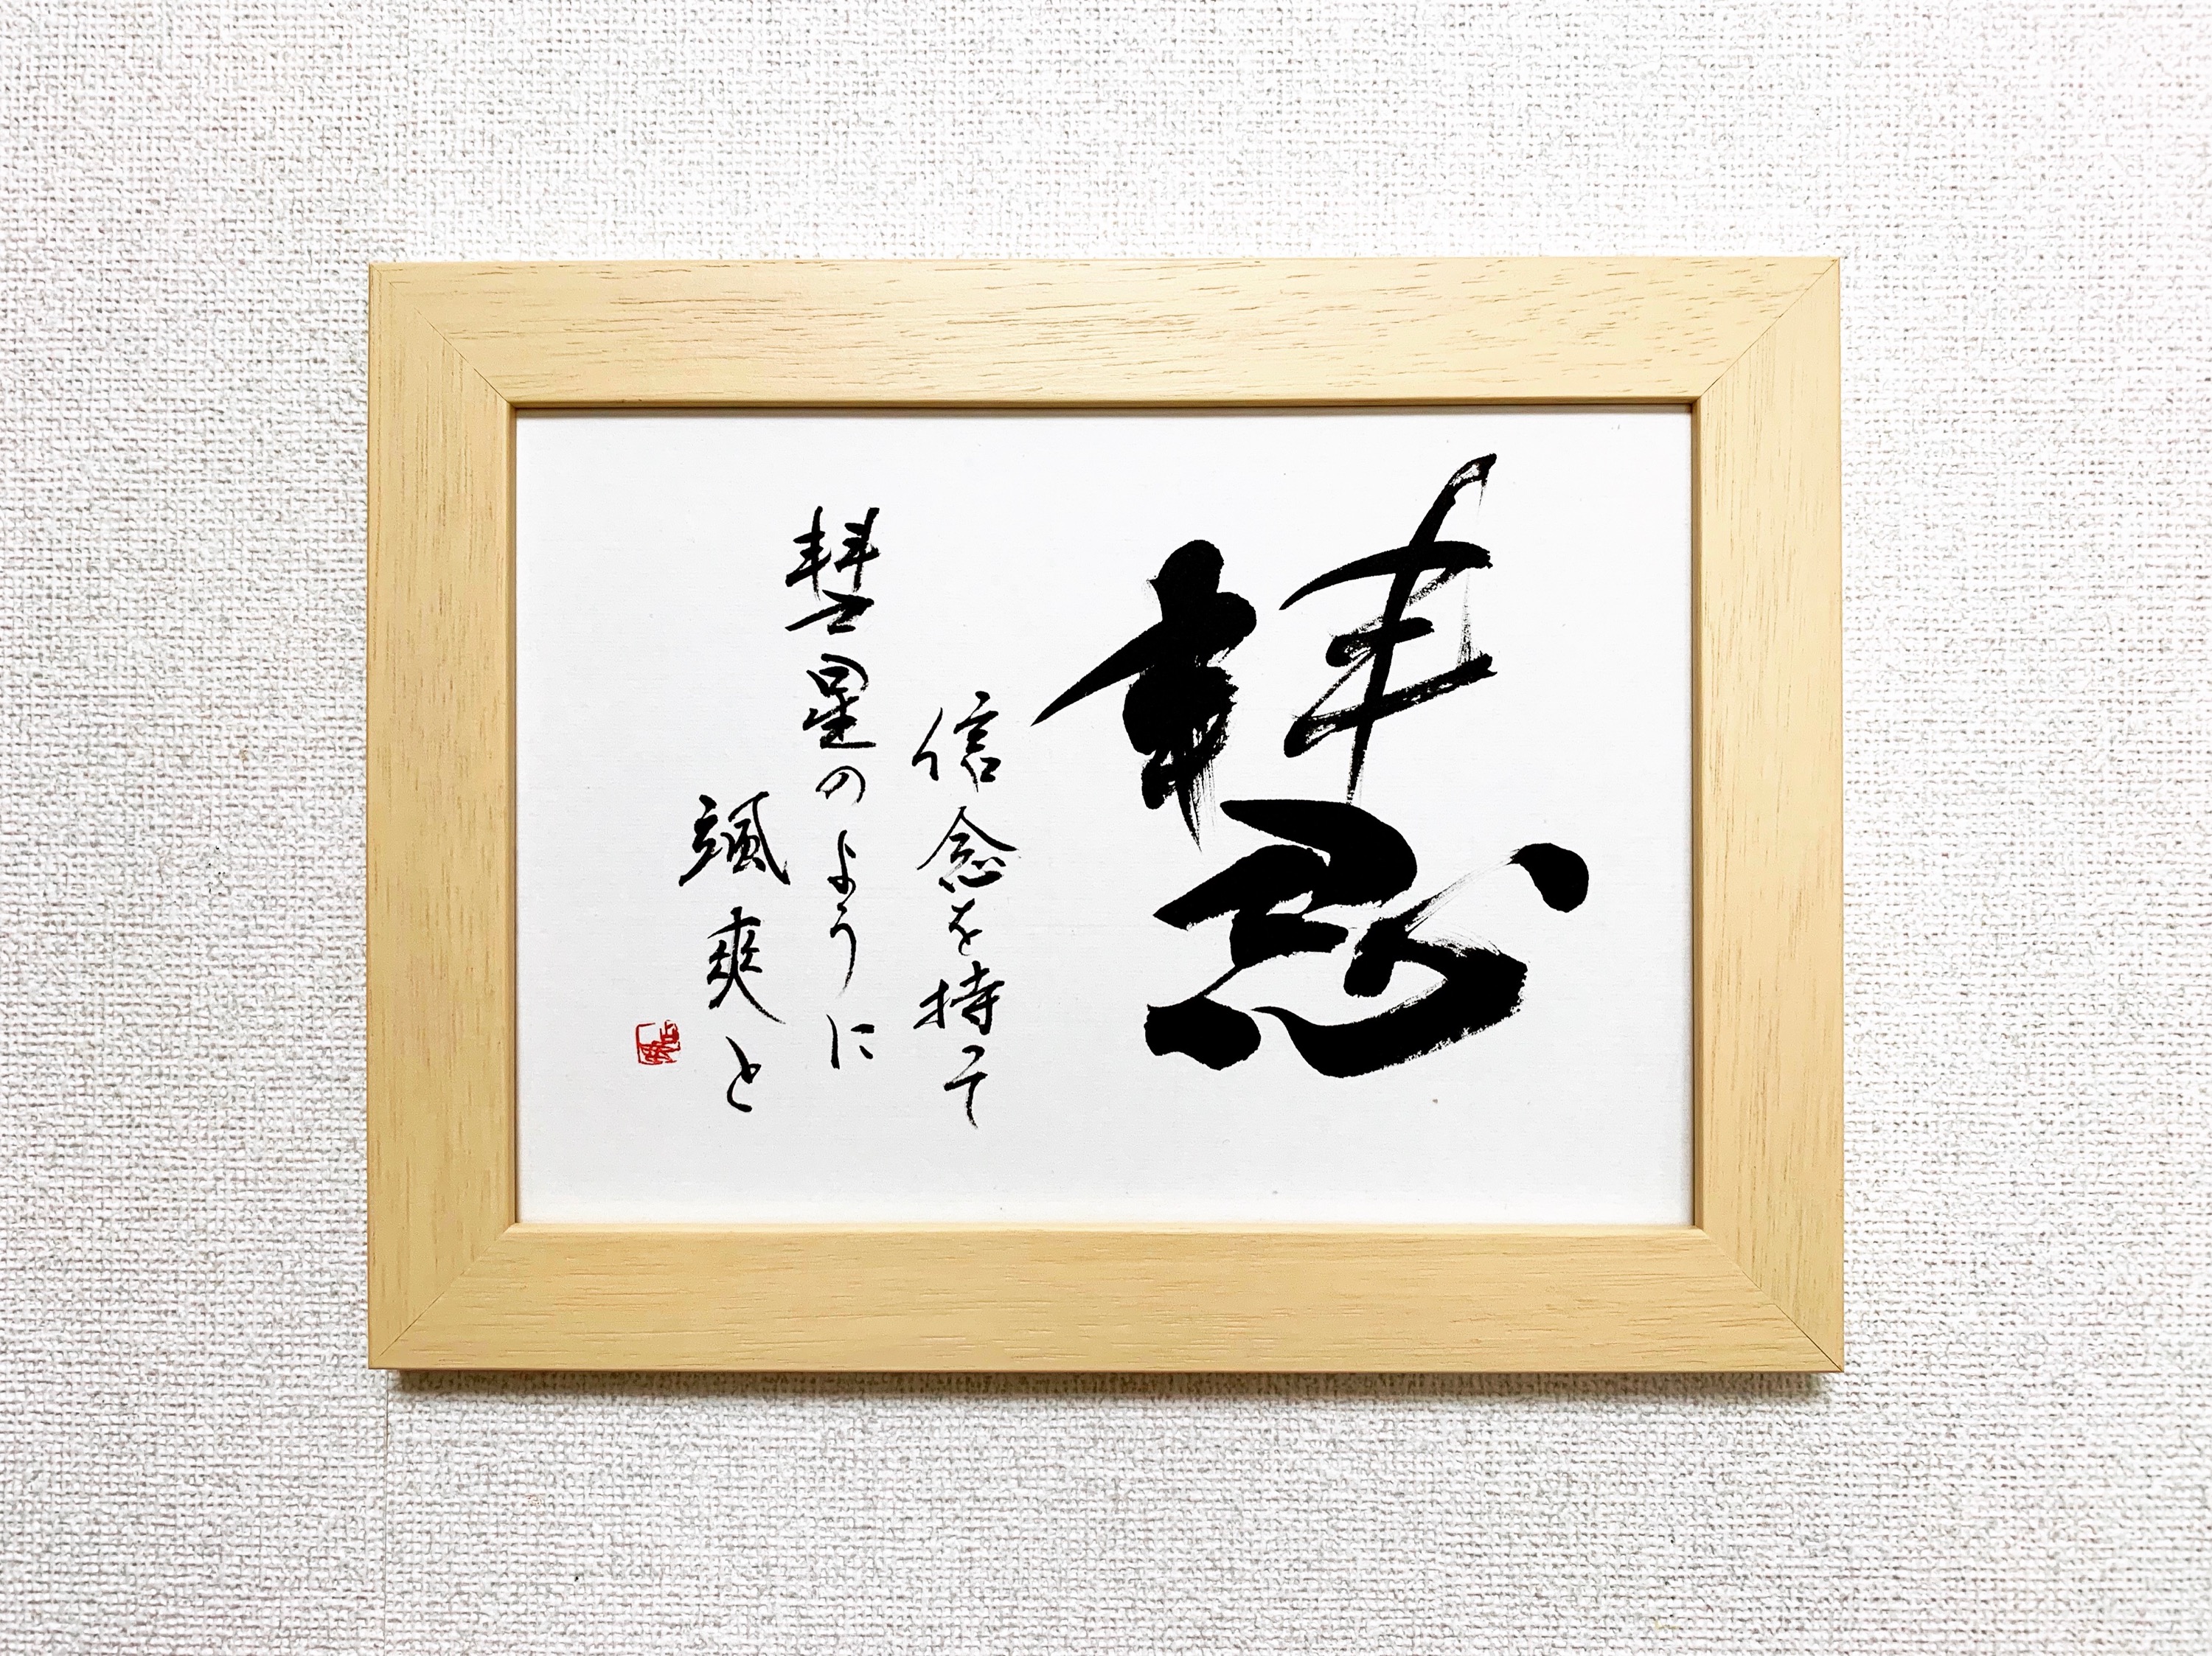 慧
信念を持って
彗星のように
颯爽と